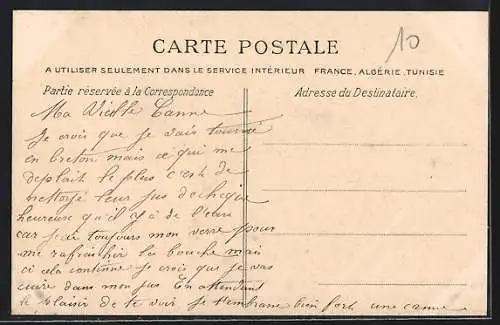 10
CARTE POSTALE
A UTILISER SEULEMENT DANS LE SERVICE INTÉRIEUR FRANCE, ALGÉRIE, TUNISIE
Partie réservée à la Correspondance
Adresse du Destinataire.
Ma Vieille Canne
Je crois que je vais tourner
en breton mais ce qui me
deplait le plus c'est de
nettoyé leur jus de chique
heureuse qu'il y a de l'eau
car j'ai toujours mon verre pour
me rafraichir la bouche mais
ci cela continue je crois que je vas
cuire dans mon jus En attendant
le plaisir de te voir je t'embrasse bien fort une canne